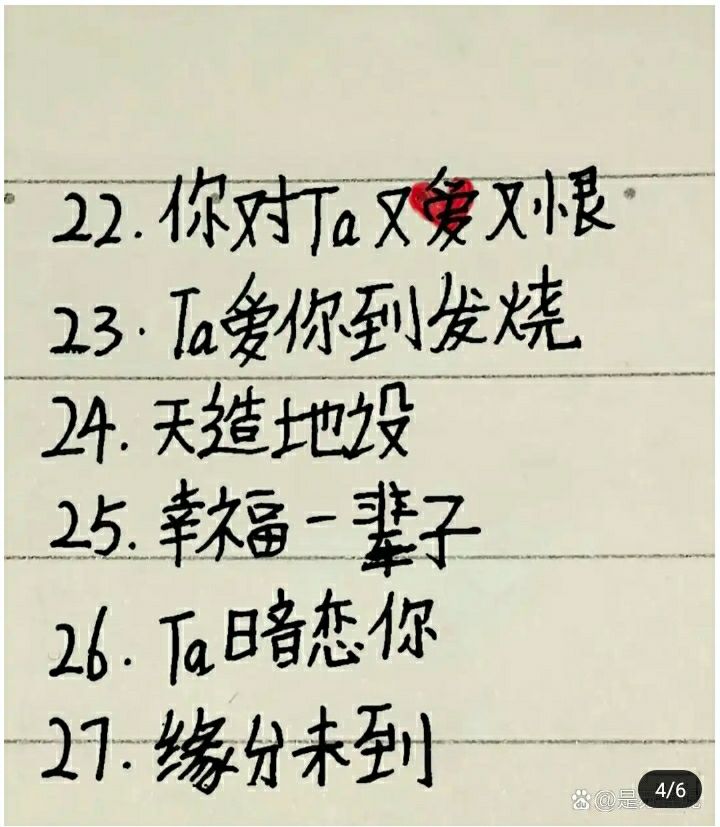 22. 你对Ta又爱又恨
23. Ta爱你到发烧
24. 天造地设
25. 幸福一辈子
26. Ta暗恋你
27. 缘分未到
4/6
@是